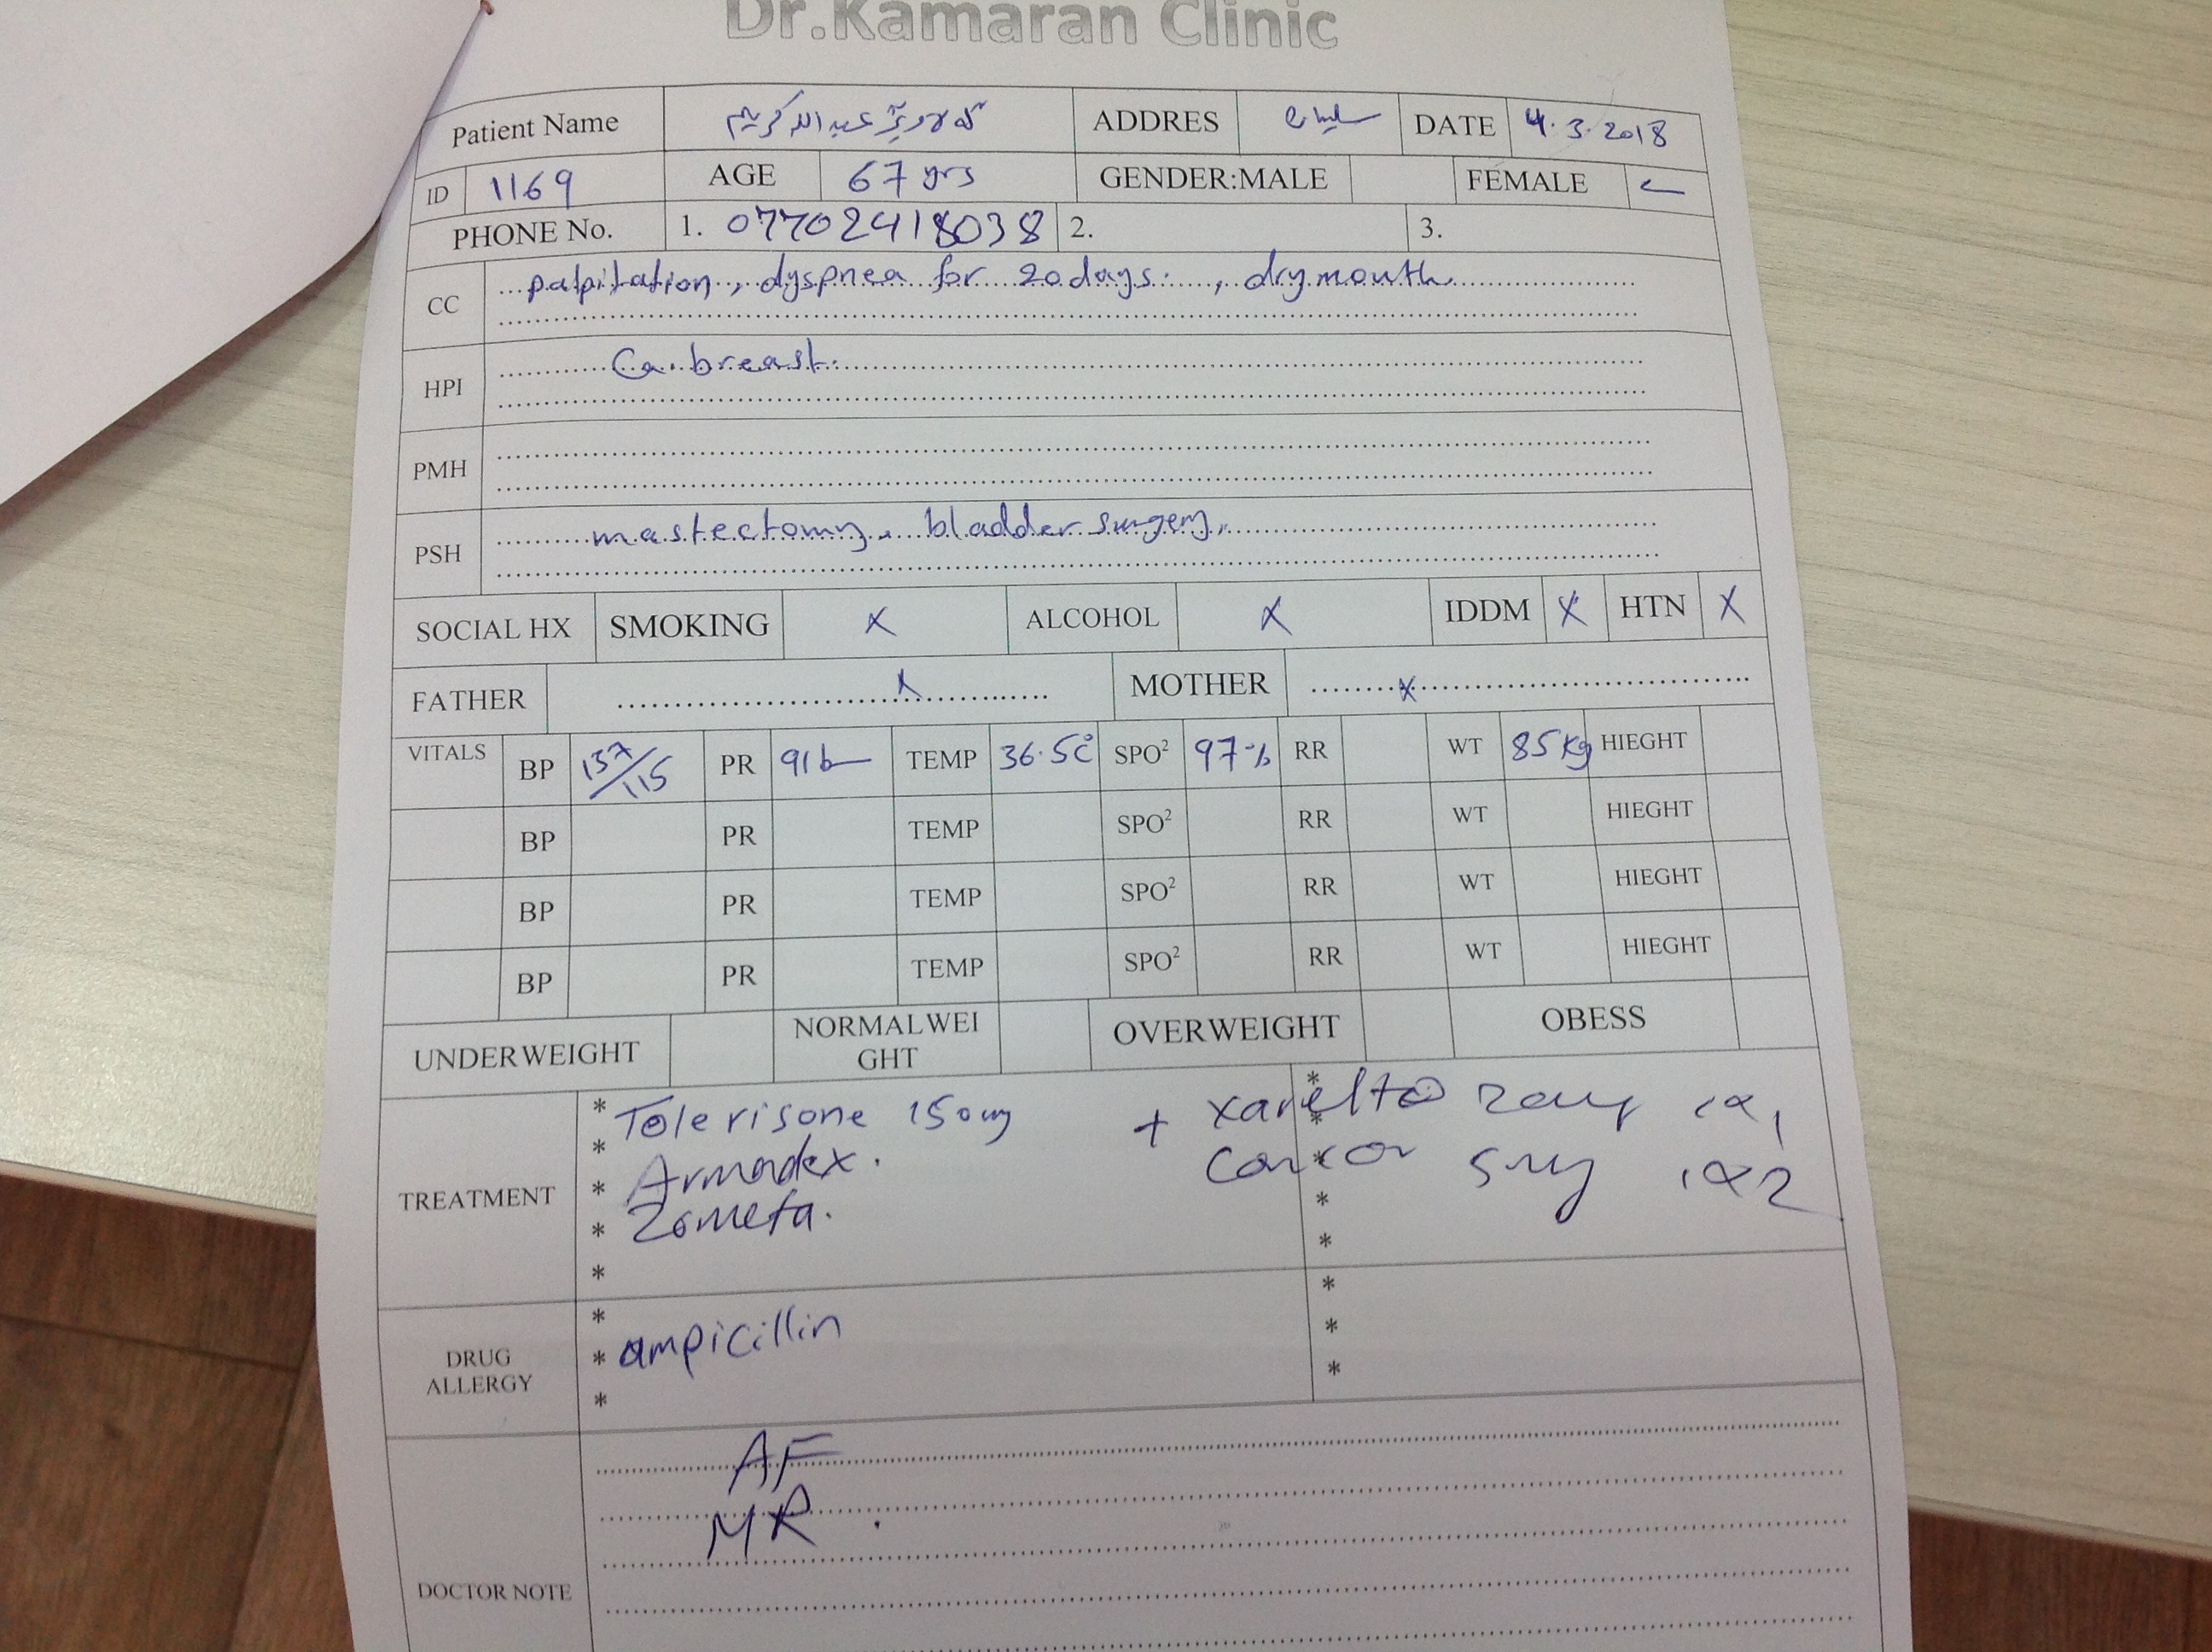 Dr.Kamaran Clinic
Patient Name گەلاوێژ عبدالكريم ADDRES سليماني DATE 4.3.2018
ID 1169 AGE 67 yrs GENDER:MALE FEMALE
PHONE No. 1. 07702418038 2. 3.
CC palpitation, dyspnea for 20 days, dry mouth
HPI Ca. breast.
PMH
PSH mastectomy, bladder surgery,
SOCIAL HX SMOKING X ALCOHOL X IDDM X HTN X
FATHER X MOTHER X
VITALS BP 137/115 PR 91b TEMP 36.5c° SPO² 97% RR WT 85 Kg HIEGHT
BP PR TEMP SPO² RR WT HIEGHT
BP PR TEMP SPO² RR WT HIEGHT
BP PR TEMP SPO² RR WT HIEGHT
UNDERWEIGHT NORMALWEI GHT OVERWEIGHT OBESS
TREATMENT
* Tolerisone 150mg + xarelto 20mg 1x1
* Armadex. concor 5mg 1x2
* Zometa.
DRUG ALLERGY
* ampicillin
AF
MR.
DOCTOR NOTE